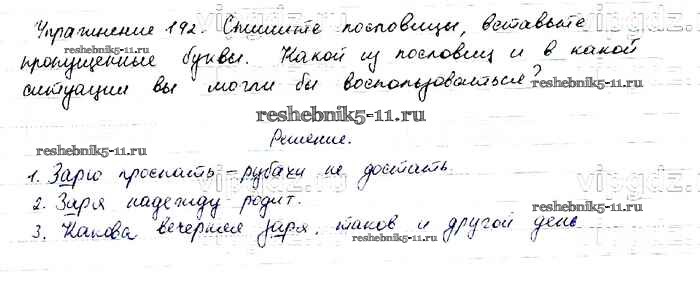 Упражнение 192. Спишите пословицы, вставьте
пропущенные буквы. Какой из пословиц и в какой
ситуации вы могли бы воспользоваться?
reshebnik5-11.ru
reshebnik5-11.ru
reshebnik5-11.ru
Решение.
reshebnik5-11.ru
1. Зарю проспать – рубахи не достать.
vipgdz.ru
2. Заря надежду родит.
reshebnik5-11.ru
3. Какова вечерняя заря, таков и другой день.
reshebnik5-11.ru